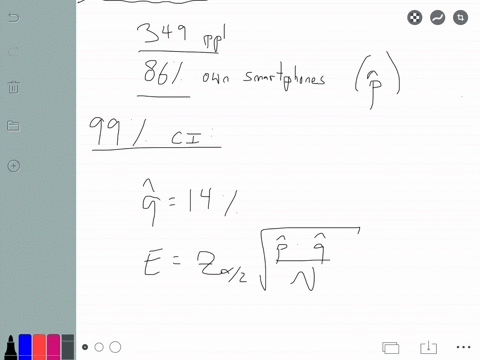 349 ppl
86% own smartphones (p̂)
99% CI
q̂ = 14%
E = Z α/2 √(p̂ · q̂ / N)